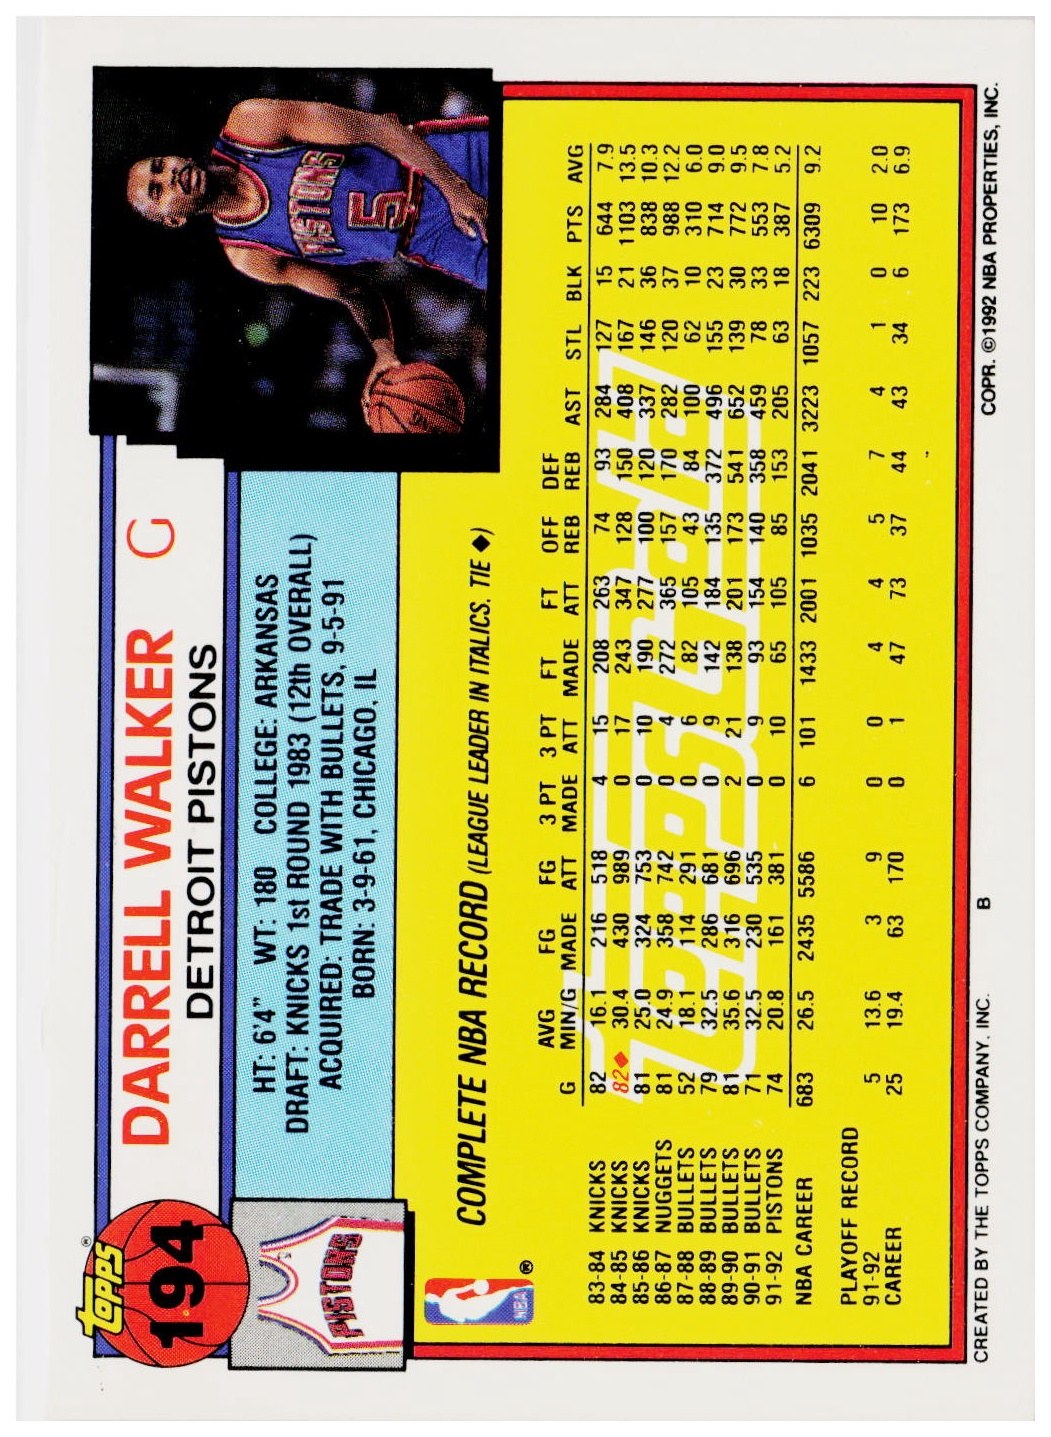 Topps®
194
DARRELL WALKER G
DETROIT PISTONS
PISTONS
5
PISTONS
HT: 6'4" WT: 180 COLLEGE: ARKANSAS
DRAFT: KNICKS 1st ROUND 1983 (12th OVERALL)
ACQUIRED: TRADE WITH BULLETS, 9-5-91
BORN: 3-9-61, CHICAGO, IL
NBA ®
COMPLETE NBA RECORD (LEAGUE LEADER IN ITALICS. TIE ◆)
AVG FG FG 3 PT 3 PT FT FT OFF DEF
G MIN/G MADE ATT MADE ATT MADE ATT REB REB AST STL BLK PTS AVG
83-84 KNICKS 82 16.1 216 518 4 15 208 263 74 93 284 127 15 644 7.9
84-85 KNICKS 82◆ 30.4 430 989 0 17 243 347 128 150 408 167 21 1103 13.5
85-86 KNICKS 81 25.0 324 753 0 10 190 277 100 120 337 146 36 838 10.3
86-87 NUGGETS 81 24.9 358 742 0 4 272 365 157 170 282 120 37 988 12.2
87-88 BULLETS 52 18.1 114 291 0 6 82 105 43 84 100 62 10 310 6.0
88-89 BULLETS 79 32.5 286 681 0 9 142 184 135 372 496 155 23 714 9.0
89-90 BULLETS 81 35.6 316 696 2 21 138 201 173 541 652 139 30 772 9.5
90-91 BULLETS 71 32.5 230 535 0 9 93 154 140 358 459 78 33 553 7.8
91-92 PISTONS 74 20.8 161 381 0 10 65 105 85 153 205 63 18 387 5.2
NBA CAREER 683 26.5 2435 5586 6 101 1433 2001 1035 2041 3223 1057 223 6309 9.2
PLAYOFF RECORD
91-92 5 13.6 3 9 0 0 4 4 5 7 4 1 0 10 2.0
CAREER 25 19.4 63 170 0 1 47 73 37 44 43 34 6 173 6.9
Topps Gold
CREATED BY THE TOPPS COMPANY, INC. B COPR. ©1992 NBA PROPERTIES, INC.